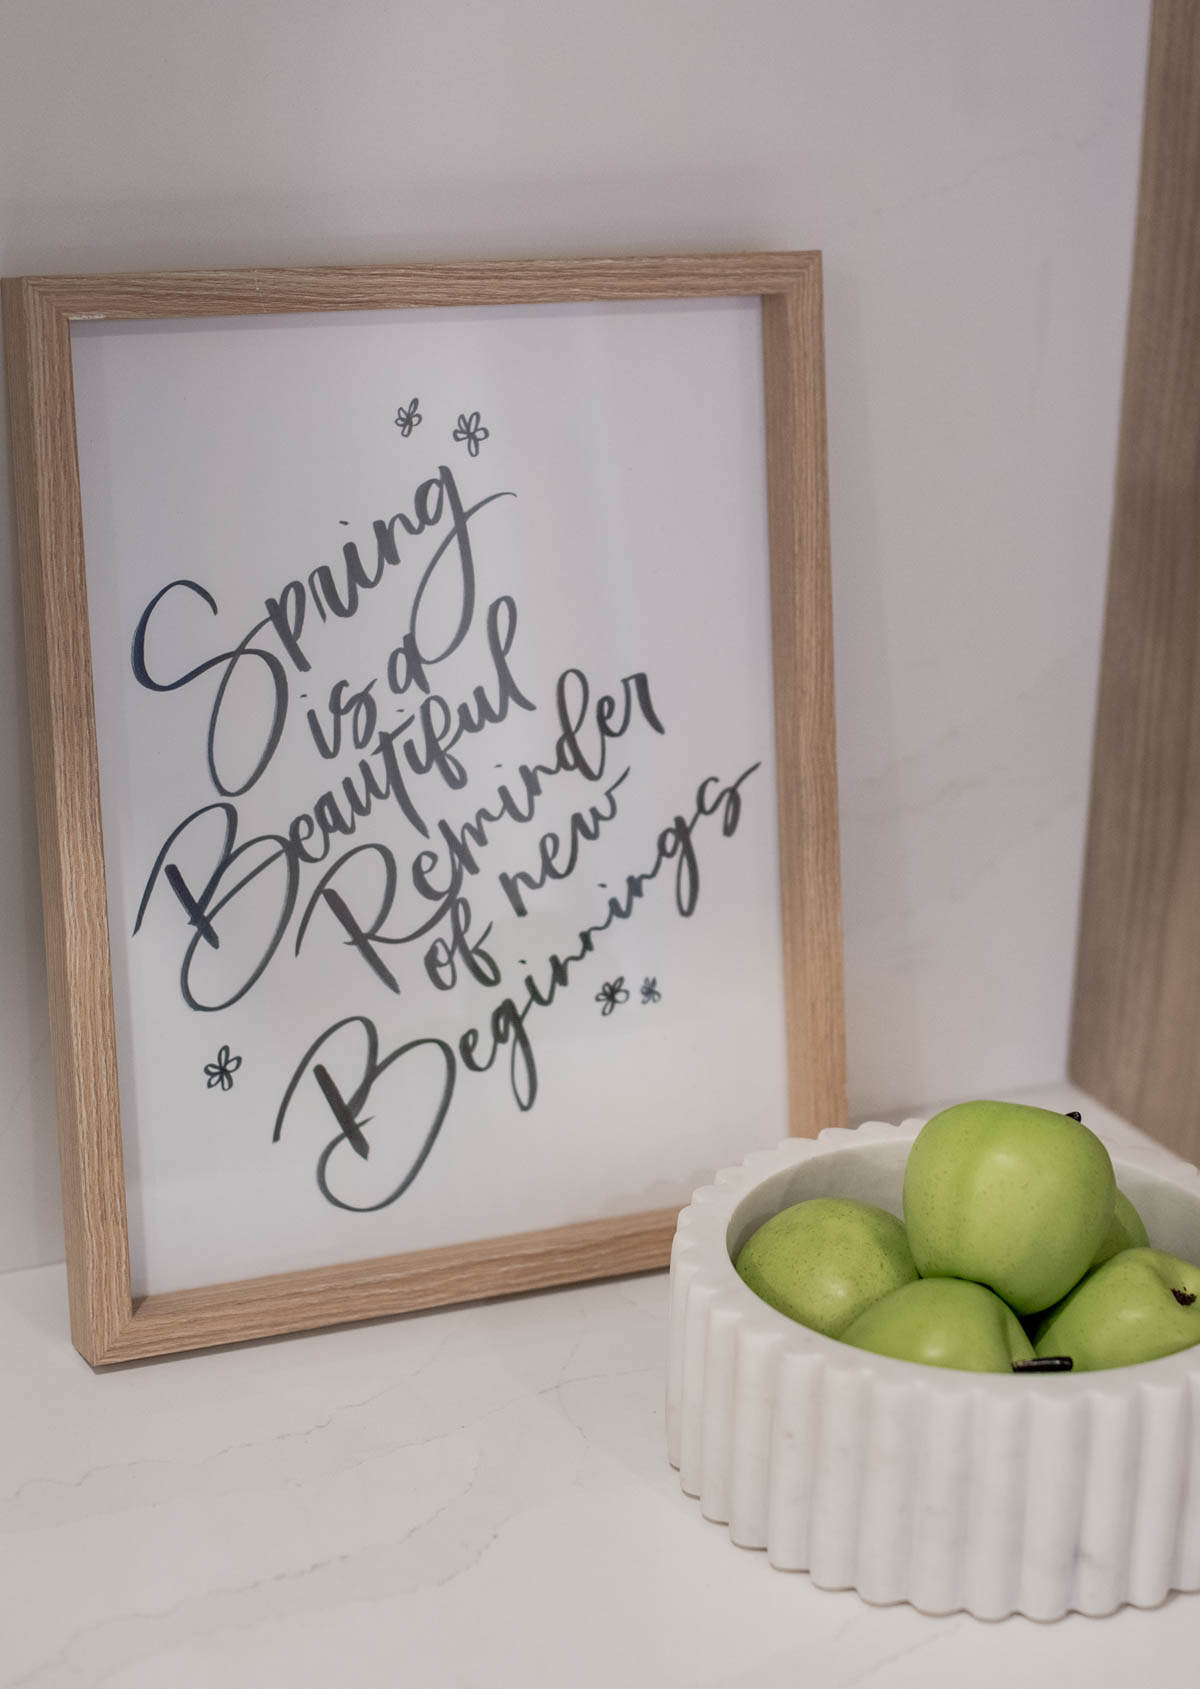 Spring
is a
Beautiful
Reminder
of new
Beginnings